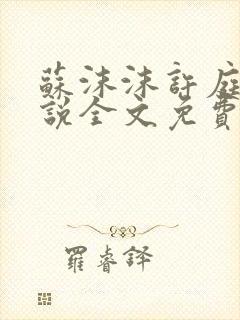 蘇沫沫許庭
說全文免費
羅睿鐸